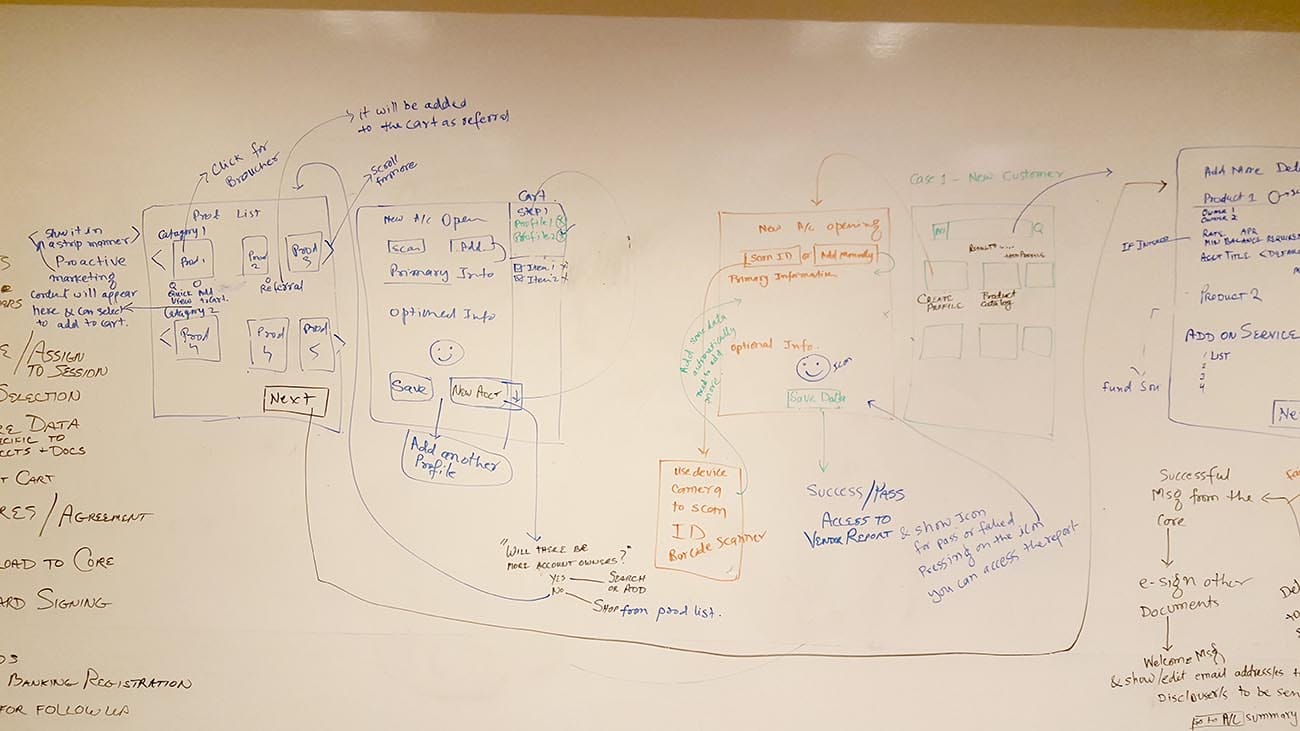 /ASSIGN
TO SESSION
DATA
TO
+ DOCS
CART
/AGREEMENT
TO CORE
SIGNING
BANKING REGISTRATION
FOR FOLLOW
show it in
a strip manner
Proactive
marketing
content will appear
here & can select
to add to cart.
Click for
Broucher
it will be added
to the cart as referral
scroll
for more
Prod List
Catagory 1
Prod 1
Prod
2
Prod
3
Quick Add
View to cart.
Referral
Catagory 2
Prod
4
Prod
4
Prod
5
Next
New A/c Open
scan
Add
Primary Info
Optioned Info
Save
New Acct
Add another
Profile
Cart
Step 1
Profile 1
Profile 2
Item 1 x
Item 2 x
"WILL THERE BE
MORE ACCOUNT OWNERS?"
YES
SEARCH
OR ADD
NO
SHOP from prod list.
New A/c opening
Scan ID
Add Manually
Primary Information
Add some data
automatically
need to add
more.
optional Info.
icon
Save Data
use device
camera
to scan
ID
Barcode Scanner
SUCCESS/PASS
ACCESS TO
VENDOR REPORT
& show Icon
for pass or failed
Pressing on the icon
you can access the report
Case 1 - New Customer
Q
CREATE
PROFILE
Product
Catalog
IF INTEREST
Fund
Add More
Product 1
OWNER 1
OWNER 2
RATE APR
MIN BALANCE
ACCT TITLE
PRODUCT 2
ADD ON SERVICE
LIST
2
3
4
Successful
Msg from the
Core
e-sign other
Documents
Welcome Msg
& show/edit email address/es
to be
Go to A/C summary